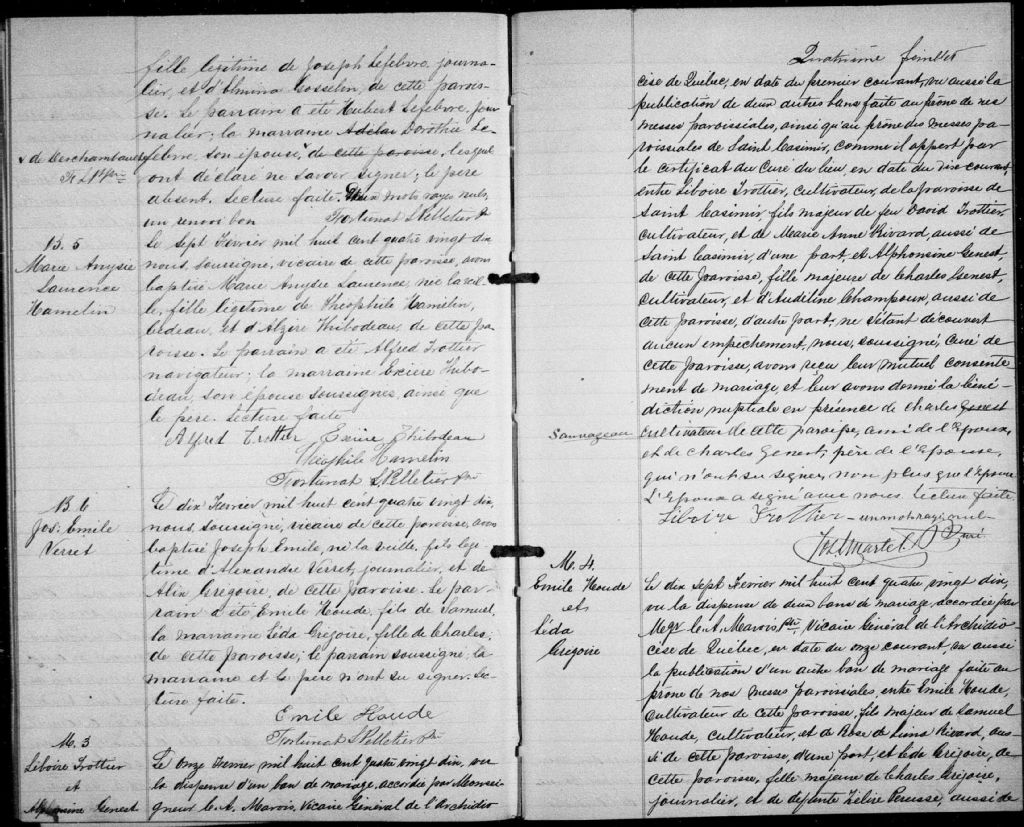 fille légitime de Joseph Lefebvre, journa-
lier, et d'Elmina Gosselin, de cette parois-
se. Le parrain a été Hubert Lefebvre, jour-
nalier; la marraine Adelas Dorothée Le-
v de Deschambault
febvre, son épouse v de cette paroisse, lesquels
F. S. P. ptre
ont déclaré ne savoir signer; le père
absent. Lecture faite. Deux mots rayés nuls,
un renvoi bon Fortunat S Pelletier Ptre
B. 5
Marie Anysie
Laurence
Hamelin
Le sept Février mil huit cent quatre vingt dix
nous, soussigné, vicaire de cette paroisse, avons
baptisé Marie Anysie Laurence, née la veil-
le, fille légitime de Théophile Hamelin,
bedeau, et d'Alzire Thibodeau, de cette pa-
roisse. Le parrain a été Alfred Trottier
navigateur; la marraine Exière Thibo-
deau, son épouse soussignés, ainsi que
le père. Lecture faite
Alfred Trottier Exiire Thibodeau
Théophile Hamelin
Fortunat S Pelletier Ptre
B. 6
Jos: Emile
Verret
Le dix Février mil huit cent quatre vingt dix,
nous, soussigné, vicaire de cette paroisse, avons
baptisé Joseph Emile, né la veille, fils légi-
time d'Alexandre Verret, journalier, et de
Alix Grégoire, de cette paroisse. Le par-
rain a été Emile Houde, fils de Samuel,
la marraine Léda Grégoire, fille de Charles;
de cette paroisse; le parrain soussigné; la
marraine et le père n'ont su signer. Lec-
ture faite.
Emile Houde
Fortunat S Pelletier Ptre
M. 3
Liboire Trottier
et
Alphonsine Genest
Le onze Février, mil huit cent quatre vingt dix, vu
la dispense d'un ban de mariage, accordée par Monsei-
gneur C. A. Marois, Vicaire Général de l'Archidio
Quatrième feuillet
cèse de Québec, en date du premier courant, vu aussi la
publication de deux autres bans faite au prône de nos
messes paroissiales, ainsi qu'au prône des messes pa-
roissiales de Saint Casimir, comme il appert par
le certificat du Curé du lieu en date du dix courant,
entre Liboire Trottier, cultivateur, de la paroisse de
Saint Casimir, fils majeur de feu David Trottier,
cultivateur, et de Marie Anne Rivard, aussi de
Saint Casimir, d'une part, et Alphonsine Genest,
de cette paroisse, fille majeure de Charles Genest,
cultivateur, et d'Audéline Champoux, aussi de
cette paroisse, d'autre part; ne s'étant découvert
aucun empêchement, nous, soussigné, Curé de
cette paroisse, avons reçu leur mutuel consente-
ment de mariage, et leur avons donné la béné-
diction nuptiale en présence de Charles Genest
Sauvageau
cultivateur de cette paroisse, ami de l'Epoux,
et de Charles Genest, père de l'Epouse,
qui n'ont su signer, non plus que l'Epouse
L'Epoux a signé avec nous. Lecture faite.
Liboire Trottier – un mot rayé nul
Jos Martel Curé.
M. 4.
Emile Houde
et
Léda
Grégoire
Le dix sept Février mil huit cent quatre vingt dix,
vu la dispense de deux bans de mariage, accordée par
Mgr C. A. Marois Ptre, Vicaire Général de l'Archidio
cèse de Québec, en date du onze courant, vu aussi
la publication d'un autre ban de mariage faite au
prône de nos messes paroissiales, entre Emile Houde,
cultivateur de cette paroisse, fils majeur de Samuel
Houde, cultivateur, et de Rose de Lima Rivard, aus-
si de cette paroisse, d'une part, et Léda Grégoire, de
cette paroisse, fille majeure de Charles Grégoire,
journalier, et de défunte Zélire Perusse, aussi de